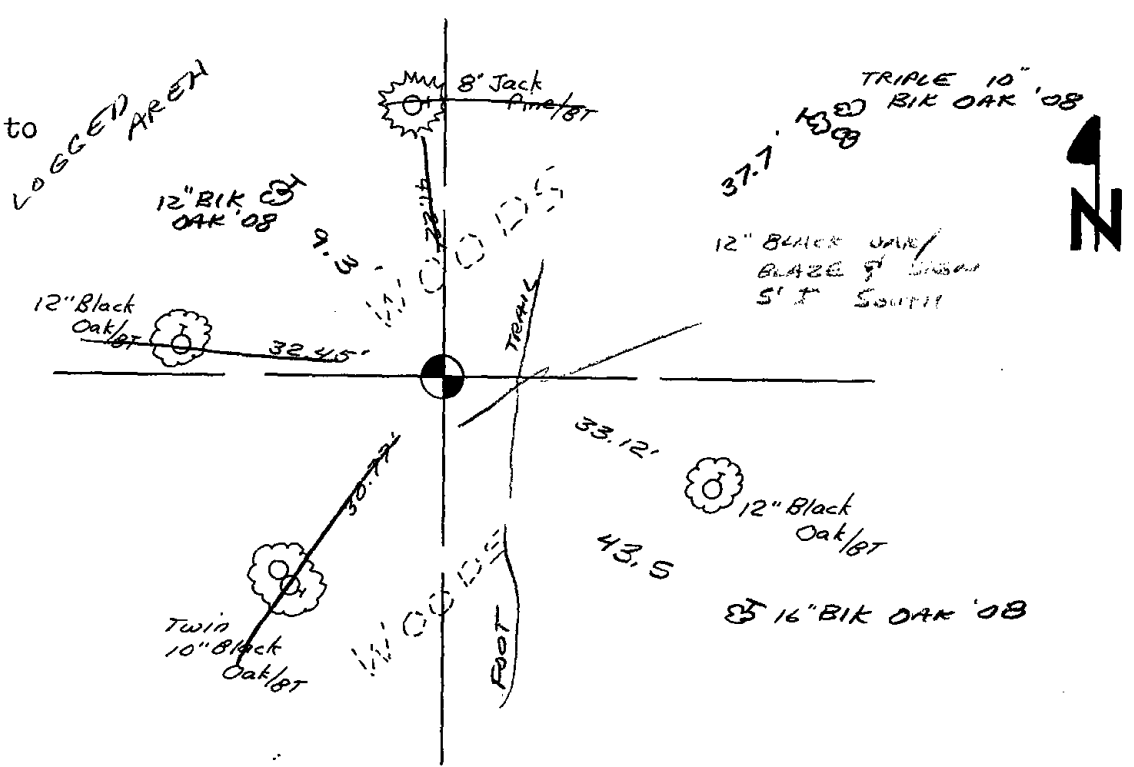 to
LOGGED AREA
8" Jack
Pine/BT
TRIPLE 10"
BlK OAK '08
37.7'
N
12" BlK
OAK '08
9.3
WOODS
12" BLACK OAK/
BLAZE & SIGN
5' ± SOUTH
12" Black
Oak/BT
32.45'
TRAIL
33.12'
12" Black
Oak/BT
30.77'
43.5
WOODS
16" BlK OAK '08
Twin
10" Black
Oak/BT
FOOT